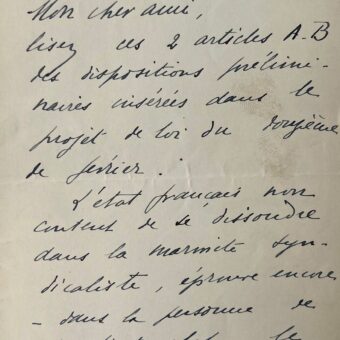 Mon cher ami,
lisez ces 2 articles A-B
des dispositions prélimi-
naires insérées dans le
projet de loi du douzième
de fevrier.
L'état français non
content de se dissoudre
dans la marmite syn-
dicaliste, éprouve encore
- dans la personne de
le